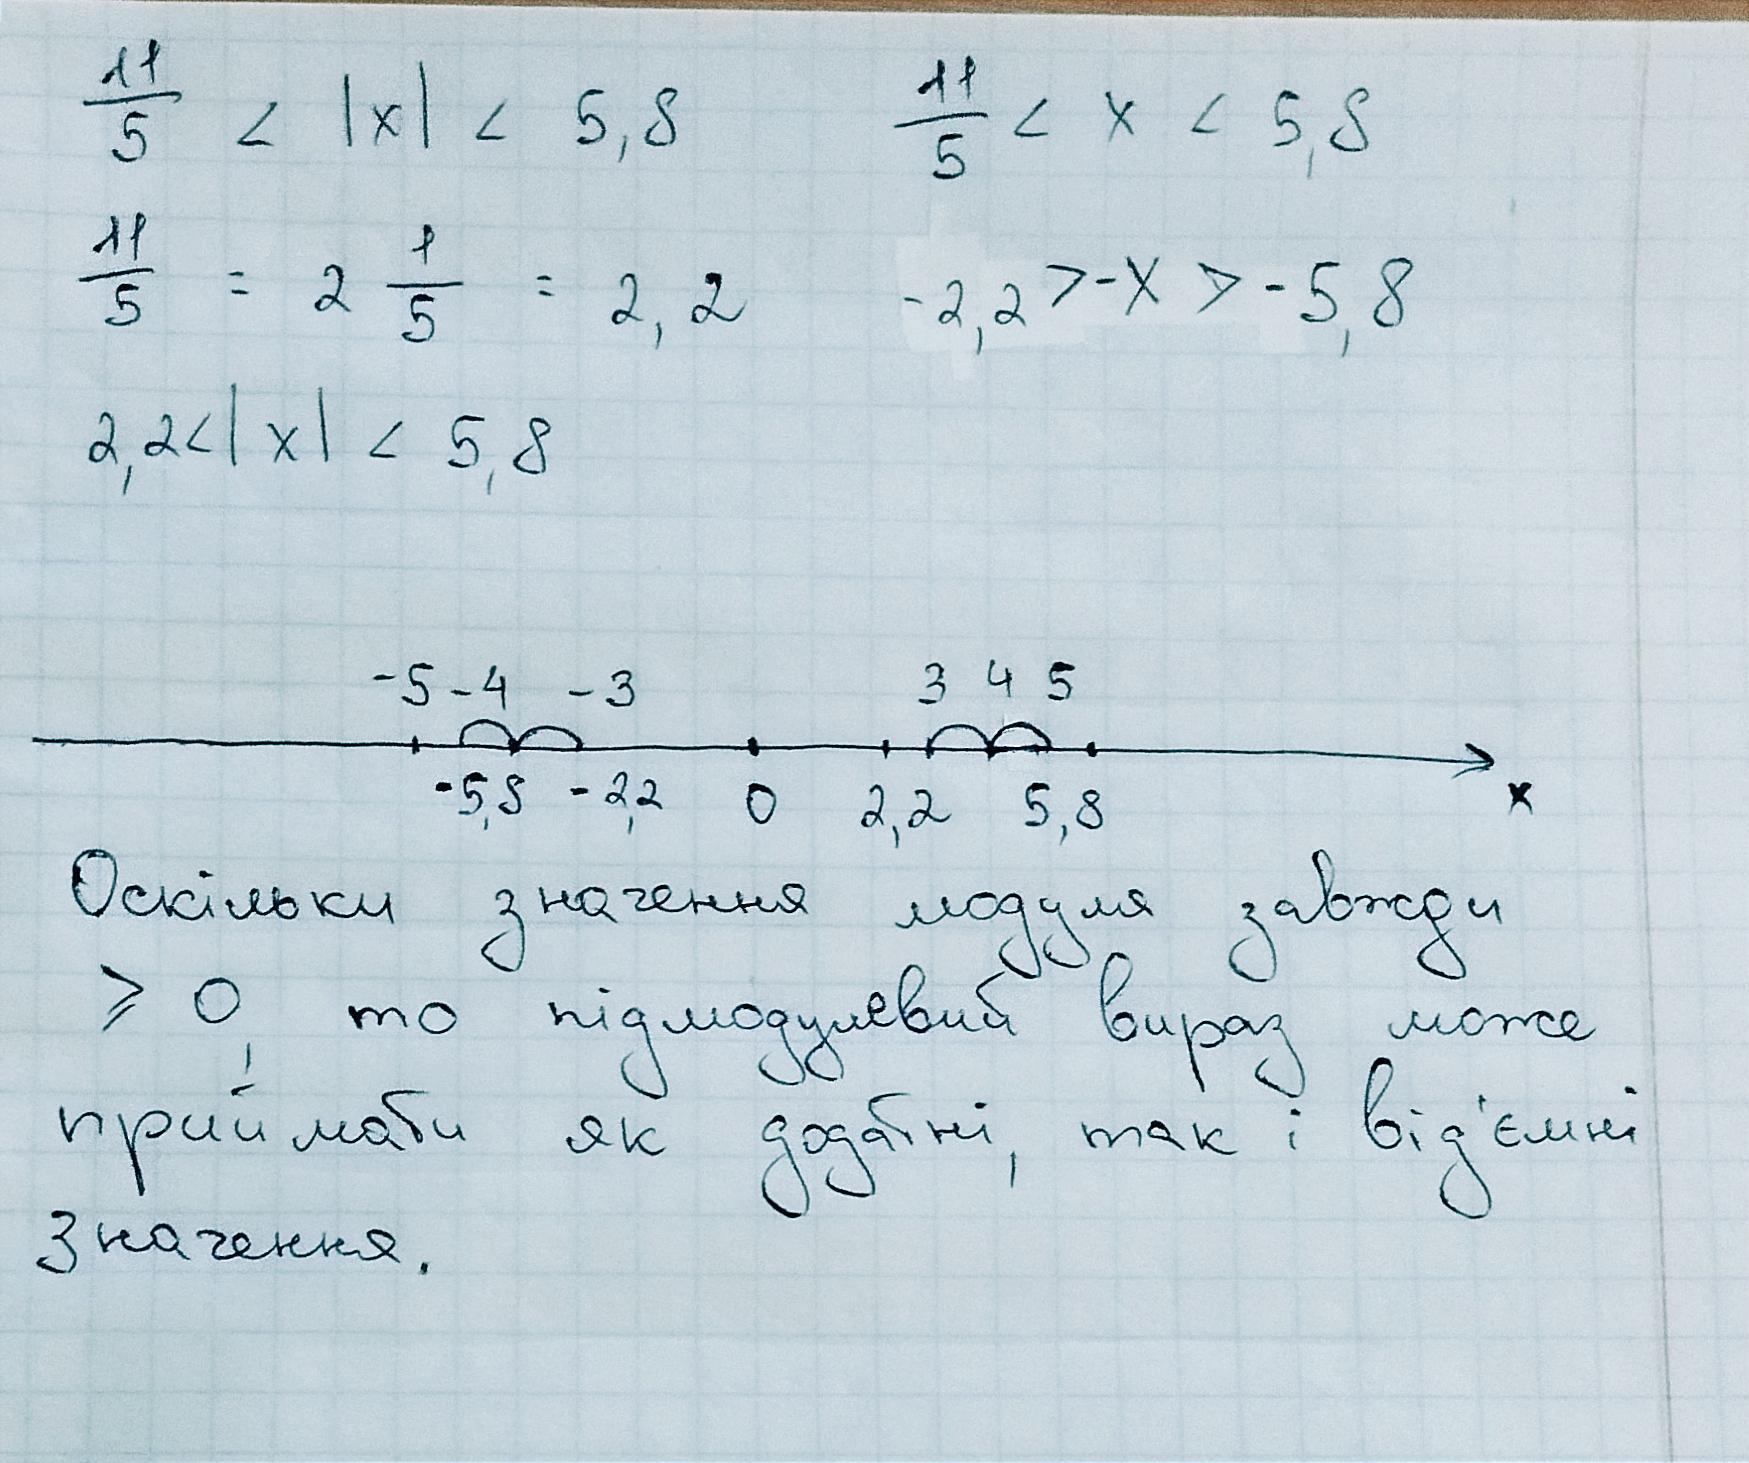 11/5 < |x| < 5,8    11/5 < x < 5,8
11/5 = 2 1/5 = 2,2    -2,2 > -x > -5,8
2,2 < |x| < 5,8
-5 -4 -3 3 4 5
-5,8 -2,2 0 2,2 5,8 x
Оскільки значення модуля завжди
≥ 0, то підмодулевий вираз може
приймати як додатні, так і від'ємні
значення.